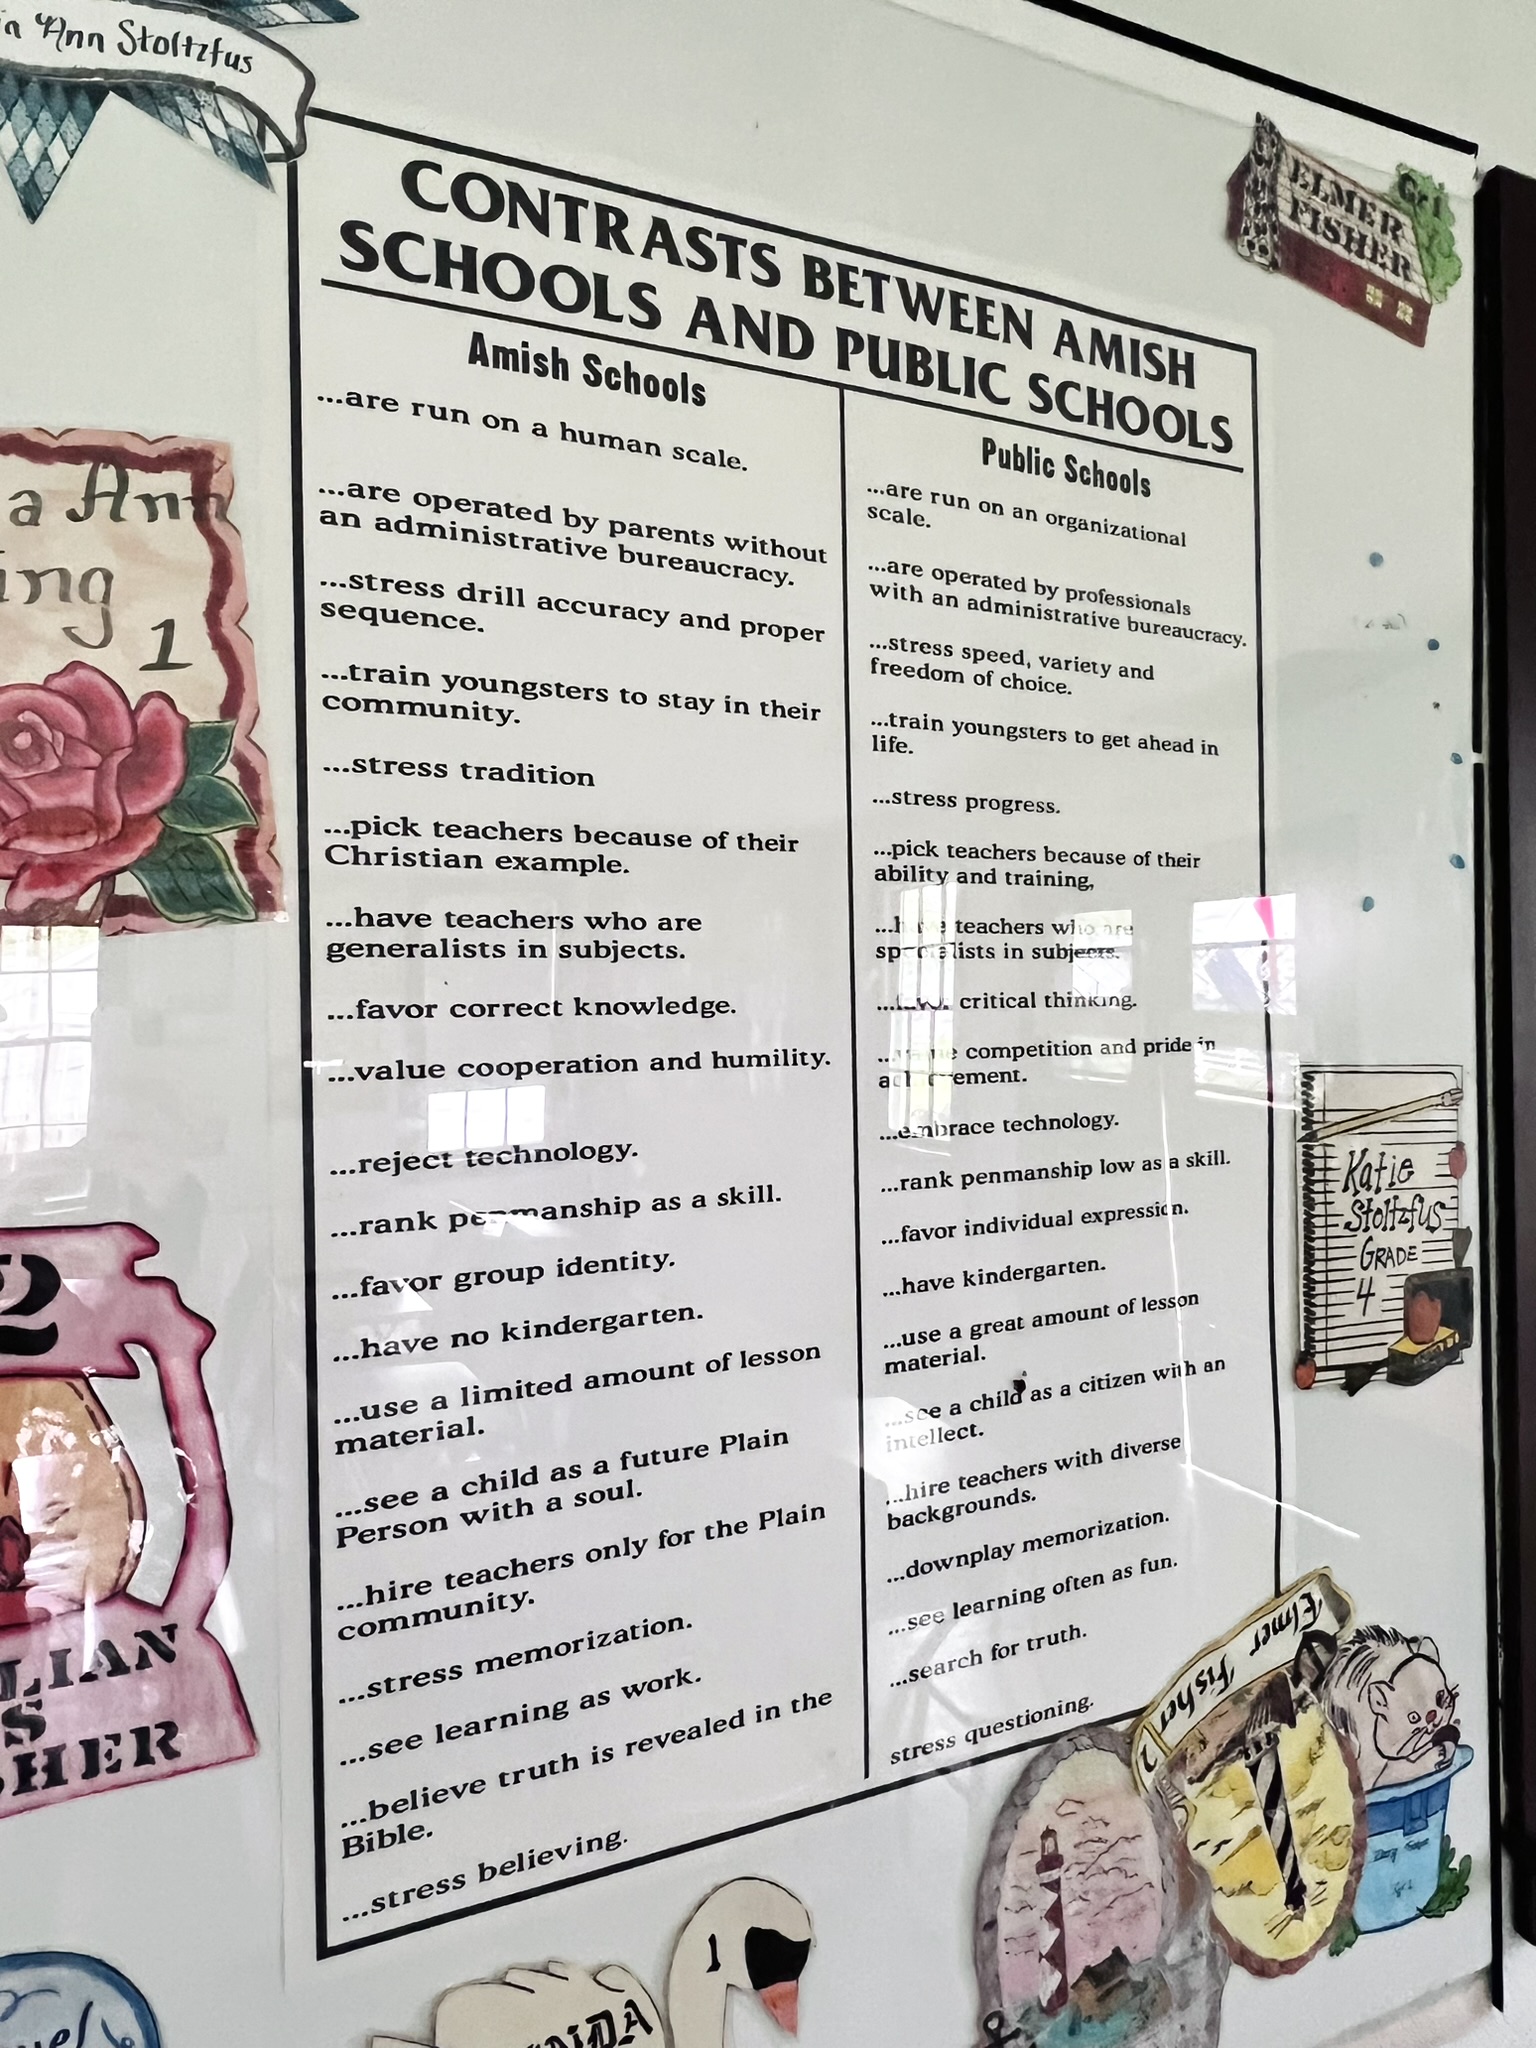 Ann Stoltzfus
ELMER
FISHER
Gr 1
CONTRASTS BETWEEN AMISH
SCHOOLS AND PUBLIC SCHOOLS
Amish Schools
...are run on a human scale.
...are operated by parents without
an administrative bureaucracy.
...stress drill accuracy and proper
sequence.
...train youngsters to stay in their
community.
...stress tradition
...pick teachers because of their
Christian example.
...have teachers who are
generalists in subjects.
...favor correct knowledge.
...value cooperation and humility.
...reject technology.
...rank penmanship as a skill.
...favor group identity.
...have no kindergarten.
...use a limited amount of lesson
material.
...see a child as a future Plain
Person with a soul.
...hire teachers only for the Plain
community.
...stress memorization.
...see learning as work.
...believe truth is revealed in the
Bible.
...stress believing.
Public Schools
...are run on an organizational
scale.
...are operated by professionals
with an administrative bureaucracy.
...stress speed, variety and
freedom of choice.
...train youngsters to get ahead in
life.
...stress progress.
...pick teachers because of their
ability and training,
...have teachers who are
specialists in subjects.
...favor critical thinking.
...value competition and pride in
achievement.
...embrace technology.
...rank penmanship low as a skill.
...favor individual expression.
...have kindergarten.
...use a great amount of lesson
material.
...see a child as a citizen with an
intellect.
...hire teachers with diverse
backgrounds.
...downplay memorization.
...see learning often as fun.
...search for truth.
stress questioning.
a Ann
ing
1
2
LIAN
S
SHER
Katie
Stoltzfus
GRADE
4
Elmer Fisher 2
1